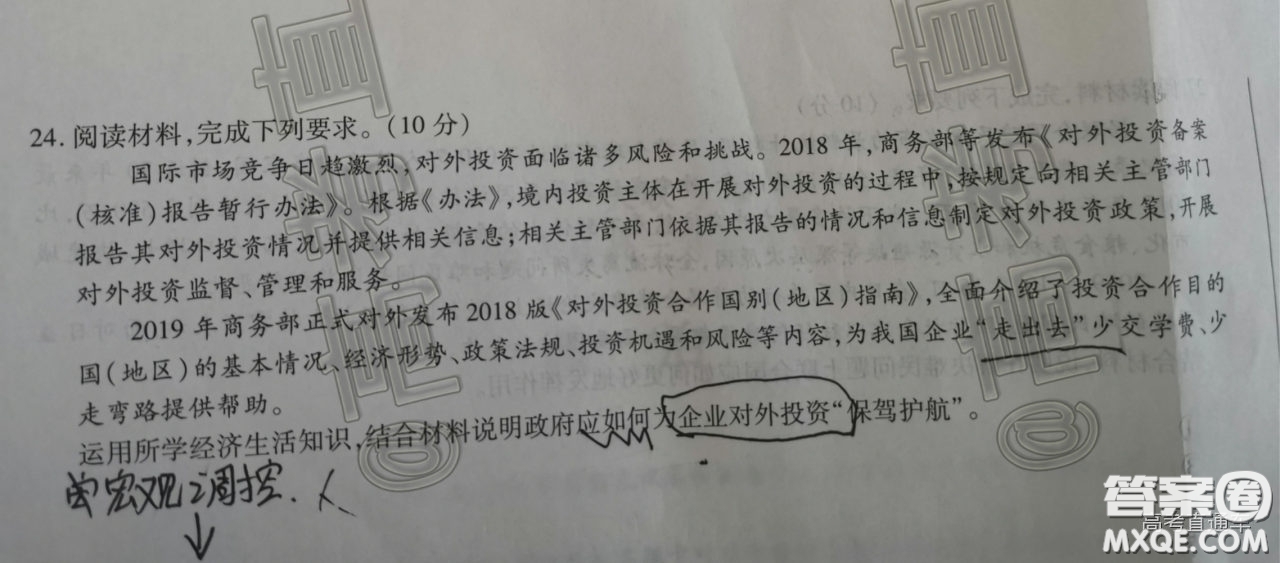 24. 阅读材料,完成下列要求。(10 分)
国际市场竞争日趋激烈,对外投资面临诸多风险和挑战。2018 年,商务部等发布《对外投资备案
(核准)报告暂行办法》。根据《办法》,境内投资主体在开展对外投资的过程中,按规定向相关主管部门
报告其对外投资情况并提供相关信息;相关主管部门依据其报告的情况和信息制定对外投资政策,开展
对外投资监督、管理和服务。
2019 年商务部正式对外发布 2018 版《对外投资合作国别(地区)指南》,全面介绍了投资合作目的
国(地区)的基本情况、经济形势、政策法规、投资机遇和风险等内容,为我国企业“走出去”少交学费、少
走弯路提供帮助。
运用所学经济生活知识,结合材料说明政府应如何为企业对外投资“保驾护航”。
宏观调控.
答案圈
高考直通车
MXQE.COM